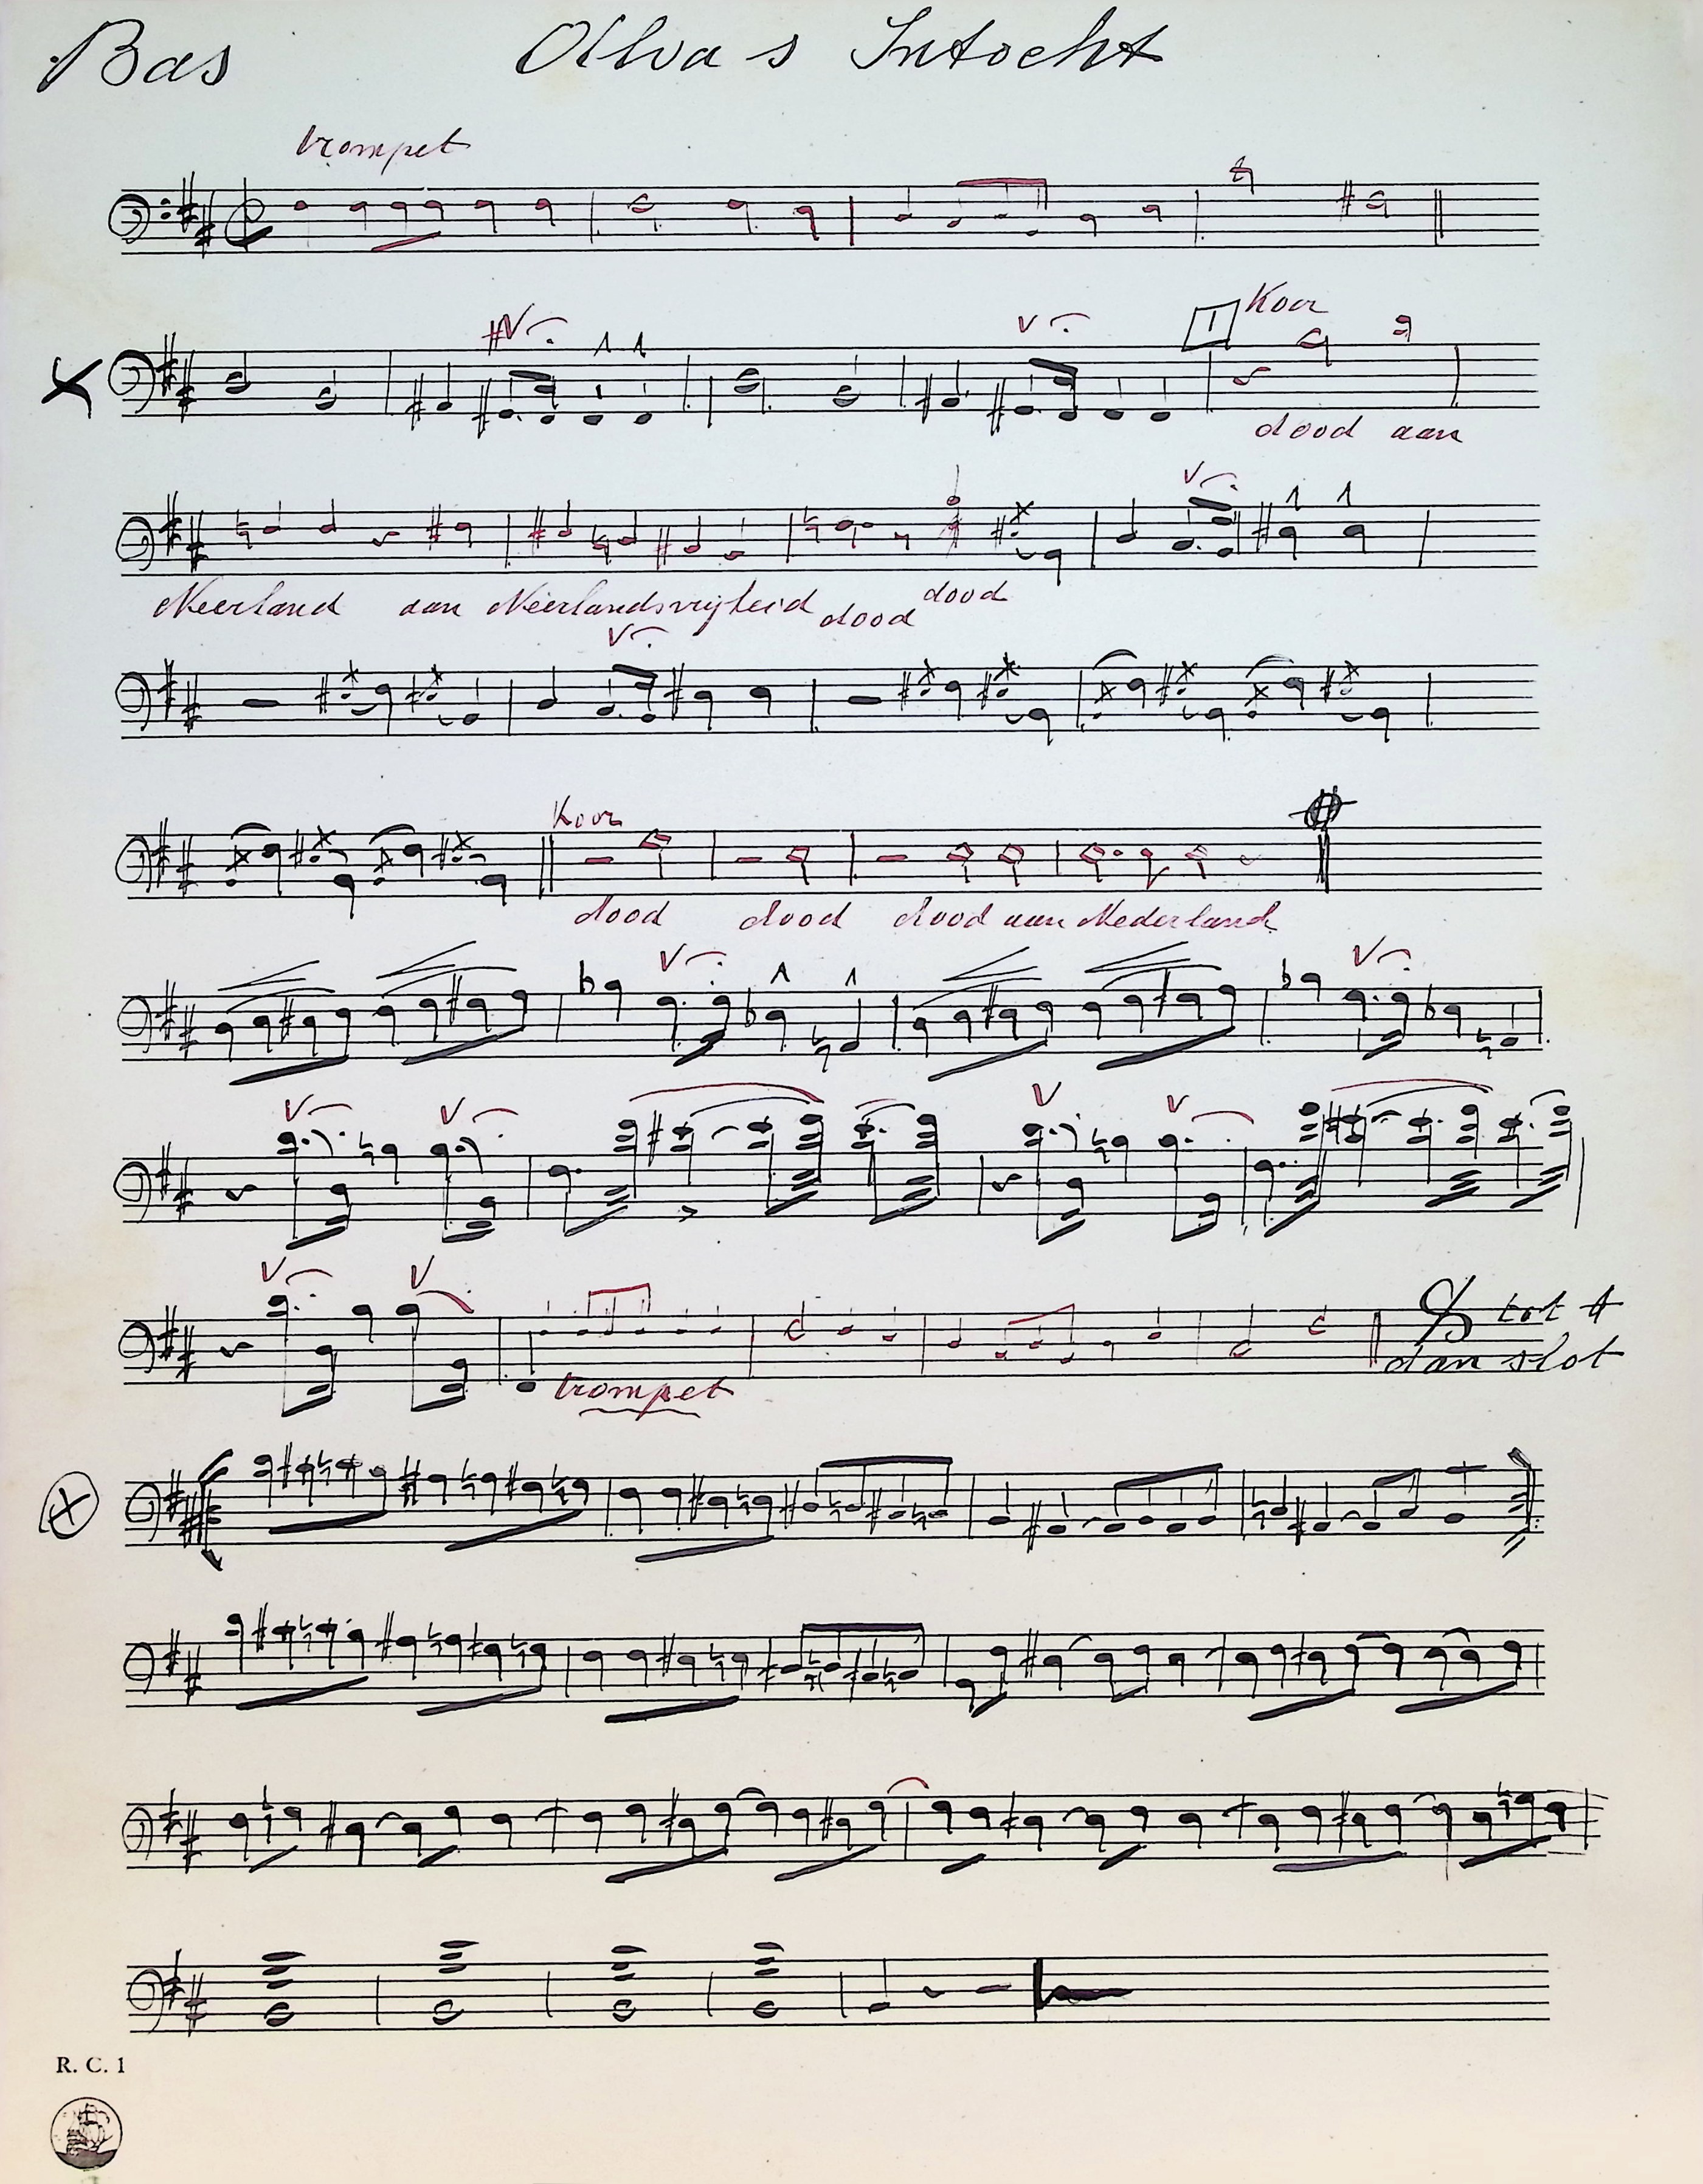 Bas Alva s Intocht
trompet
1 Koor
dood aan
Neerland aan Neerlandsvrijheid dood dood
Koor
dood dood dood aan Nederland
trompet
tot
dan slot
R. C. 1